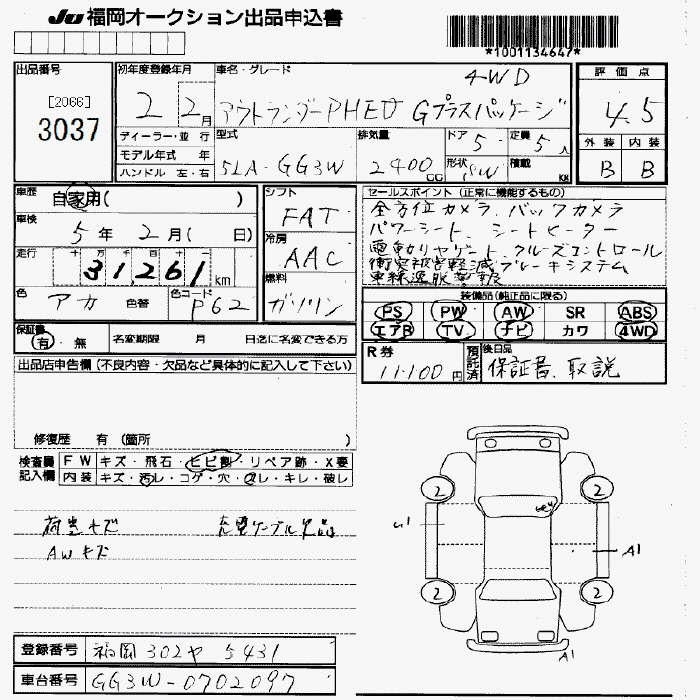 Ju 福岡オークション出品申込書
*1001134647*
出品番号
[2066]
3037
初年度登録年月
2 2月
車名・グレード
4WD
アウトランダーPHEV Gプラスパッケージ
評価点
4.5
ディーラー・並 行
モデル年式 年
ハンドル 左・右
型式
5LA-GG3W
排気量
2400 CC
ドア 5
形状 SW
定員 5人
積載 KG
外装 内装
B B
車歴
自家用( )
車検
5年 2月( 日)
走行
十 万 千 百 十 一
31,261 km
色
アカ 色替
色コード
P62
シフト
FAT
冷房
AAC
燃料
ガソリン
セールスポイント (正常に機能するもの)
全方位カメラ、バックカメラ
パワーシート、シートヒーター
電動リヤゲート、クルーズコントロール
衝突被害軽減ブレーキシステム
車線逸脱警報
装備品(純正品に限る)
PS PW AW SR ABS
エアB TV ナビ カワ 4WD
保証書
有・無
名変期限 月 日迄に名変できる方
R券
11,100円
預託済
後日品
保証書、取説
出品店申告欄 (不良内容・欠品など具体的に記入して下さい)
修復歴 有 (箇所 )
検査員記入欄
FW キズ・飛石・ヒビ割・リペア跡・X要
内装 キズ・汚レ・コゲ・穴・スレ・キレ・破レ
荷室キズ
充電ケーブル欠品
AWキズ
2
2
2
2
U1
A1
A1
登録番号 福岡 302ヤ 5431
車台番号 GG3W-0702097